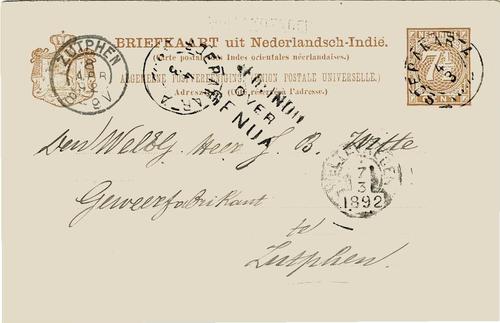 BRIEFKAART uit Nederlandsch-Indië.
(Carte postale des Indes orientales néerlandaises.)
ALGEMEENE POSTVEREENIGING (UNION POSTALE UNIVERSELLE.)
Adreszijde. (Côté réservé à l'adresse.)
ZUTPHEN
8
APR
8V
SOEPAKARTA
OVER
GENUA
SOERAKARTA
7½
CENT
Den WelEdg Heer J. B. Witte
7
3
1892
Geweerfabrikant
te
Zutphen.